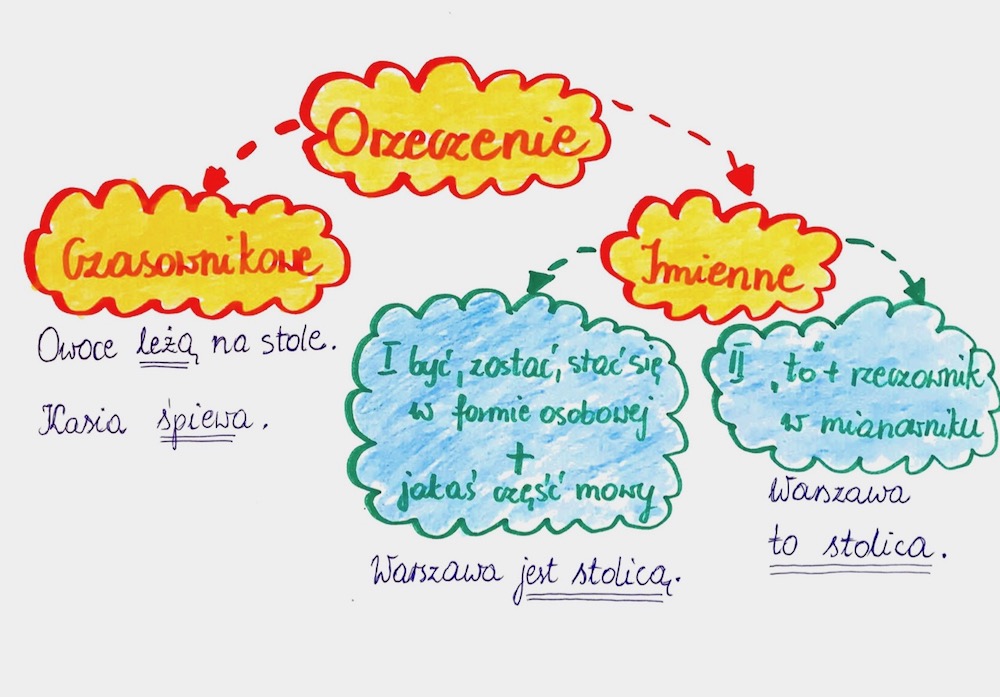 Orzeczenie
Czasownikowe
Owoce leżą na stole.
Kasia śpiewa.
Imienne
I być, zostać, stać się
w formie osobowej
+
jakaś część mowy
Warszawa jest stolicą.
II „to" + rzeczownik
w mianowniku
Warszawa
to stolica.